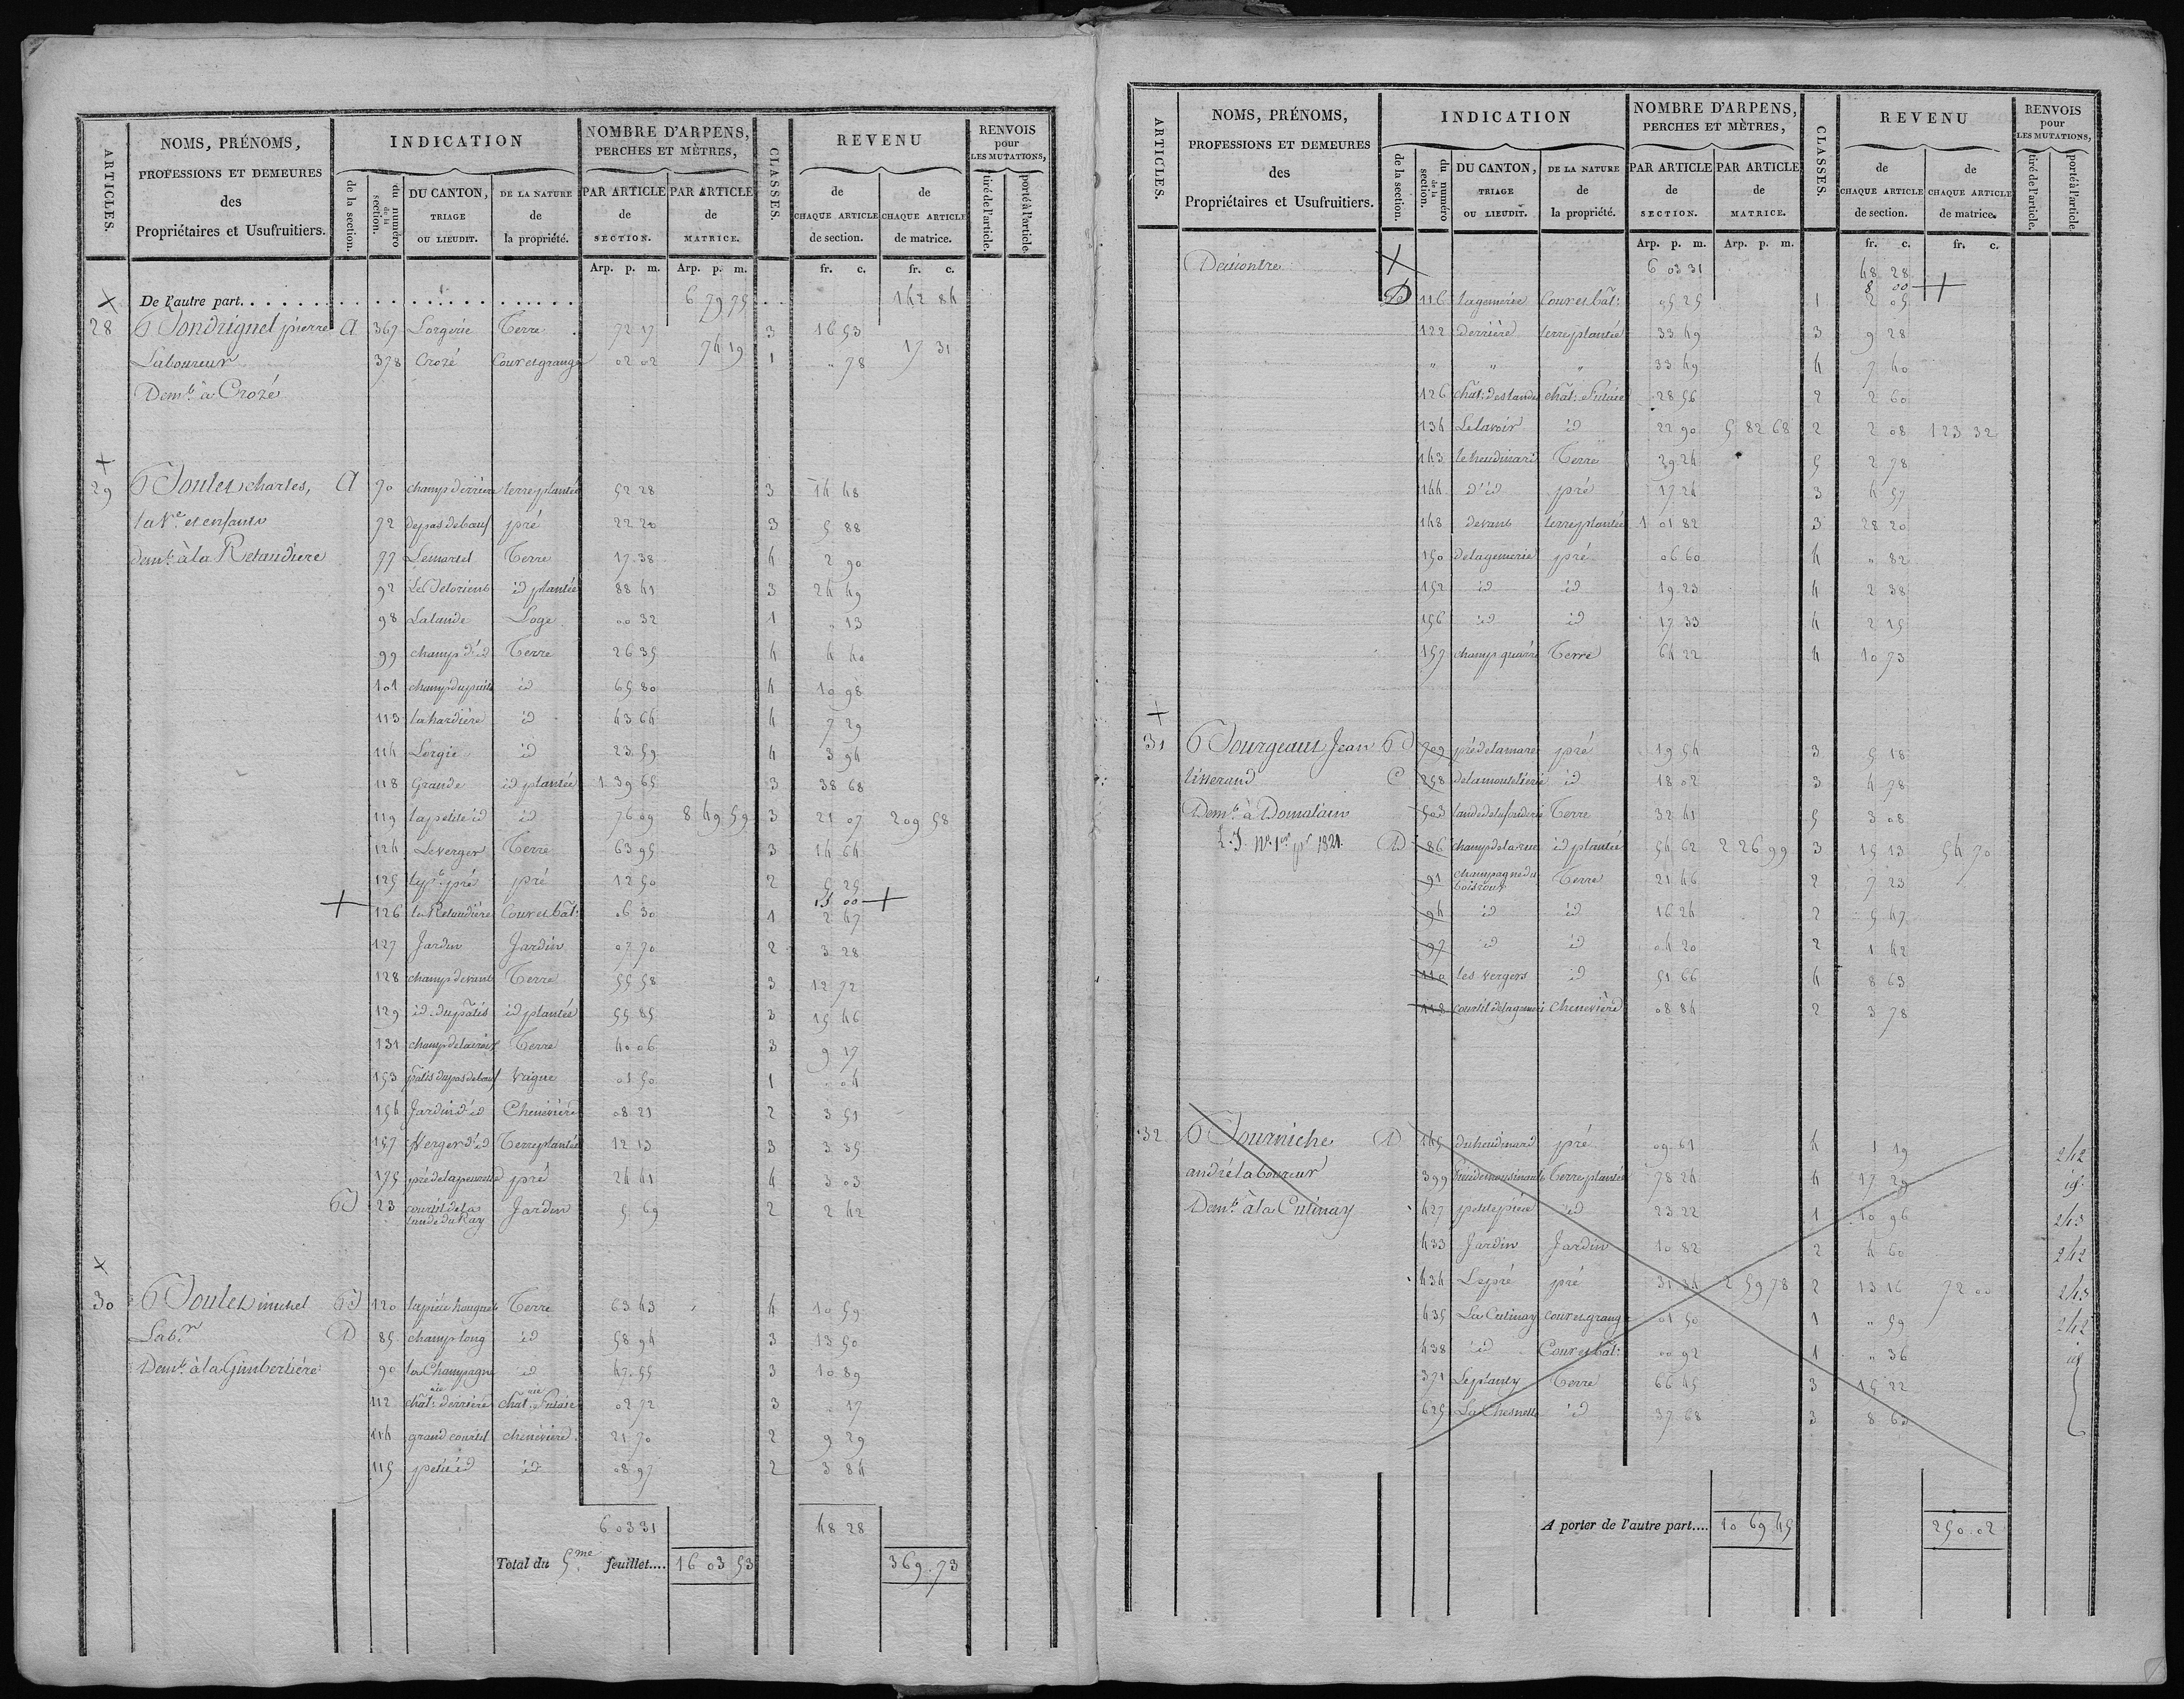 ARTICLES.
NOMS, PRÉNOMS,
PROFESSIONS ET DEMEURES
des
Propriétaires et Usufruitiers.
INDICATION
de la section.
du numéro de la section.
DU CANTON, TRIAGE OU LIEUDIT.
DE LA NATURE de la propriété.
NOMBRE D'ARPENS, PERCHES ET MÈTRES,
PAR ARTICLE de SECTION.
PAR ARTICLE de MATRICE.
CLASSES.
REVENU
de CHAQUE ARTICLE de section.
de CHAQUE ARTICLE de matrice.
RENVOIS pour LES MUTATIONS,
tiré de l'article.
porté à l'article.
Arp. p. m. Arp. p. m. fr. c. fr. c.
De l'autre part. 6 79 75 142 84
28 Pierre A 367 Lorgerie Terre 72 17 3 16 53
Laboureur 378 Crozé Cour et grange 02 02 74 19 1 " 78 17 31
Demt. à Crozé
29 Charles, A 70 champ derriere terre plantée 52 28 3 14 48
la Ve. et enfants 72 de pas de bœuf pré 22 20 3 5 88
demt. à la Retaudiere 77 Lemartel Terre 17 38 4 2 90
92 id plantée 88 41 3 24 49
98 Lalande Loge 00 32 1 " 13
99 champ d'id Terre 26 35 4 4 40
101 champ du puits id 65 80 4 10 98
113 la hardière id 43 64 4 7 29
114 Lorgie id 23 59 4 3 94
118 Grande id plantée 1 39 65 3 38 68
119 la petite id id 76 09 8 49 59 3 21 07 209 58
124 Le verger Terre 63 95 3 14 64
125 le pt. pré pré 12 50 2 5 25
15 00
126 la Retaudière Cour et bât: 06 30 1 2 47
127 Jardin Jardin 07 70 2 3 28
128 champ devant Terre 55 58 3 12 72
129 id du patis id plantée 55 85 3 15 46
131 champ de la croix Terre 40 06 3 9 17
153 patis du pas de bœuf Vague 01 50 1 " 04
154 Jardin d'id Chenevière 08 21 2 3 51
157 Verger d'id Terre plantée 12 13 3 3 35
175 pré pré 24 41 4 3 03
B 23 courtil de la lande du Ray Jardin 5 69 2 2 42
30 michel B 120 la pièce Terre 63 43 4 10 59
Labr D 85 champ long id 58 94 3 13 50
Demt. à la Gimbertière 90 la Champagne id 47 55 3 10 89
112 chât. derrière chât. 02 72 3 " 17
114 grand courtil chenevière 21 70 2 9 29
115 petit id id 08 97 2 3 84
6 03 31 48 28
Total du 5me feuillet.... 16 03 53 369.73
ARTICLES.
NOMS, PRÉNOMS,
PROFESSIONS ET DEMEURES
des
Propriétaires et Usufruitiers.
INDICATION
de la section.
du numéro de la section.
DU CANTON, TRIAGE OU LIEUDIT.
DE LA NATURE de la propriété.
NOMBRE D'ARPENS, PERCHES ET MÈTRES,
PAR ARTICLE de SECTION.
PAR ARTICLE de MATRICE.
CLASSES.
REVENU
de CHAQUE ARTICLE de section.
de CHAQUE ARTICLE de matrice.
RENVOIS pour LES MUTATIONS,
tiré de l'article.
porté à l'article.
Arp. p. m. Arp. p. m. fr. c. fr. c.
Deciontre 6 03 31 48 28
8 00
D 116 Cour et bât: 05 25 1 2 05
122 derrière terre plantée 33 49 3 9 28
" " " 33 49 4 7 40
126 chât: des landes chât: 28 56 2 2 60
134 Le lavoir id 22 90 5 82 68 2 2 08 123 32
143 Terre 29 24 5 2 78
144 d'id pré 17 24 3 4 57
148 devant terre plantée 1 01 82 3 28 20
150 pré 06 60 4 " 82
152 id id 19 23 4 2 38
156 id id 17 33 4 2 15
157 champ quarré Terre 64 22 4 10 73
31 Jean B 709 pré de la mare pré 19 54 3 5 18
tisserand C 258 id 18 02 3 4 78
Demt. à Domalain 503 Terre 32 41 5 3 08
1821. D 86 champ de la rue id plantée 54 62 2 26 99 3 15 13 54 70
91 champagne du Terre 21 46 2 7 23
94 id id 16 24 2 5 47
97 id id 04 20 2 1 42
110 les vergers id 51 66 4 8 63
118 courtil Chenevière 08 84 2 3 78
32 D 145 pré 09 61 4 1 19 242
andré laboureur 399 Terre plantée 78 24 4 17 29 id.
Demt. à la Cutinay 427 petite pièce id 23 22 1 10 96 243
433 Jardin Jardin 10 82 2 4 60 242
434 Le pré pré 31 34 2 59 78 2 13 16 72 00 243
435 La Cutinay cour et grange 01 50 1 " 59 242
438 id Cour et bât: 00 92 1 " 36 id
371 Le planty Terre 66 45 3 15 22
625 La Chesnette id 37 68 3 8 63
A porter de l'autre part.... 10 69 45 250.02